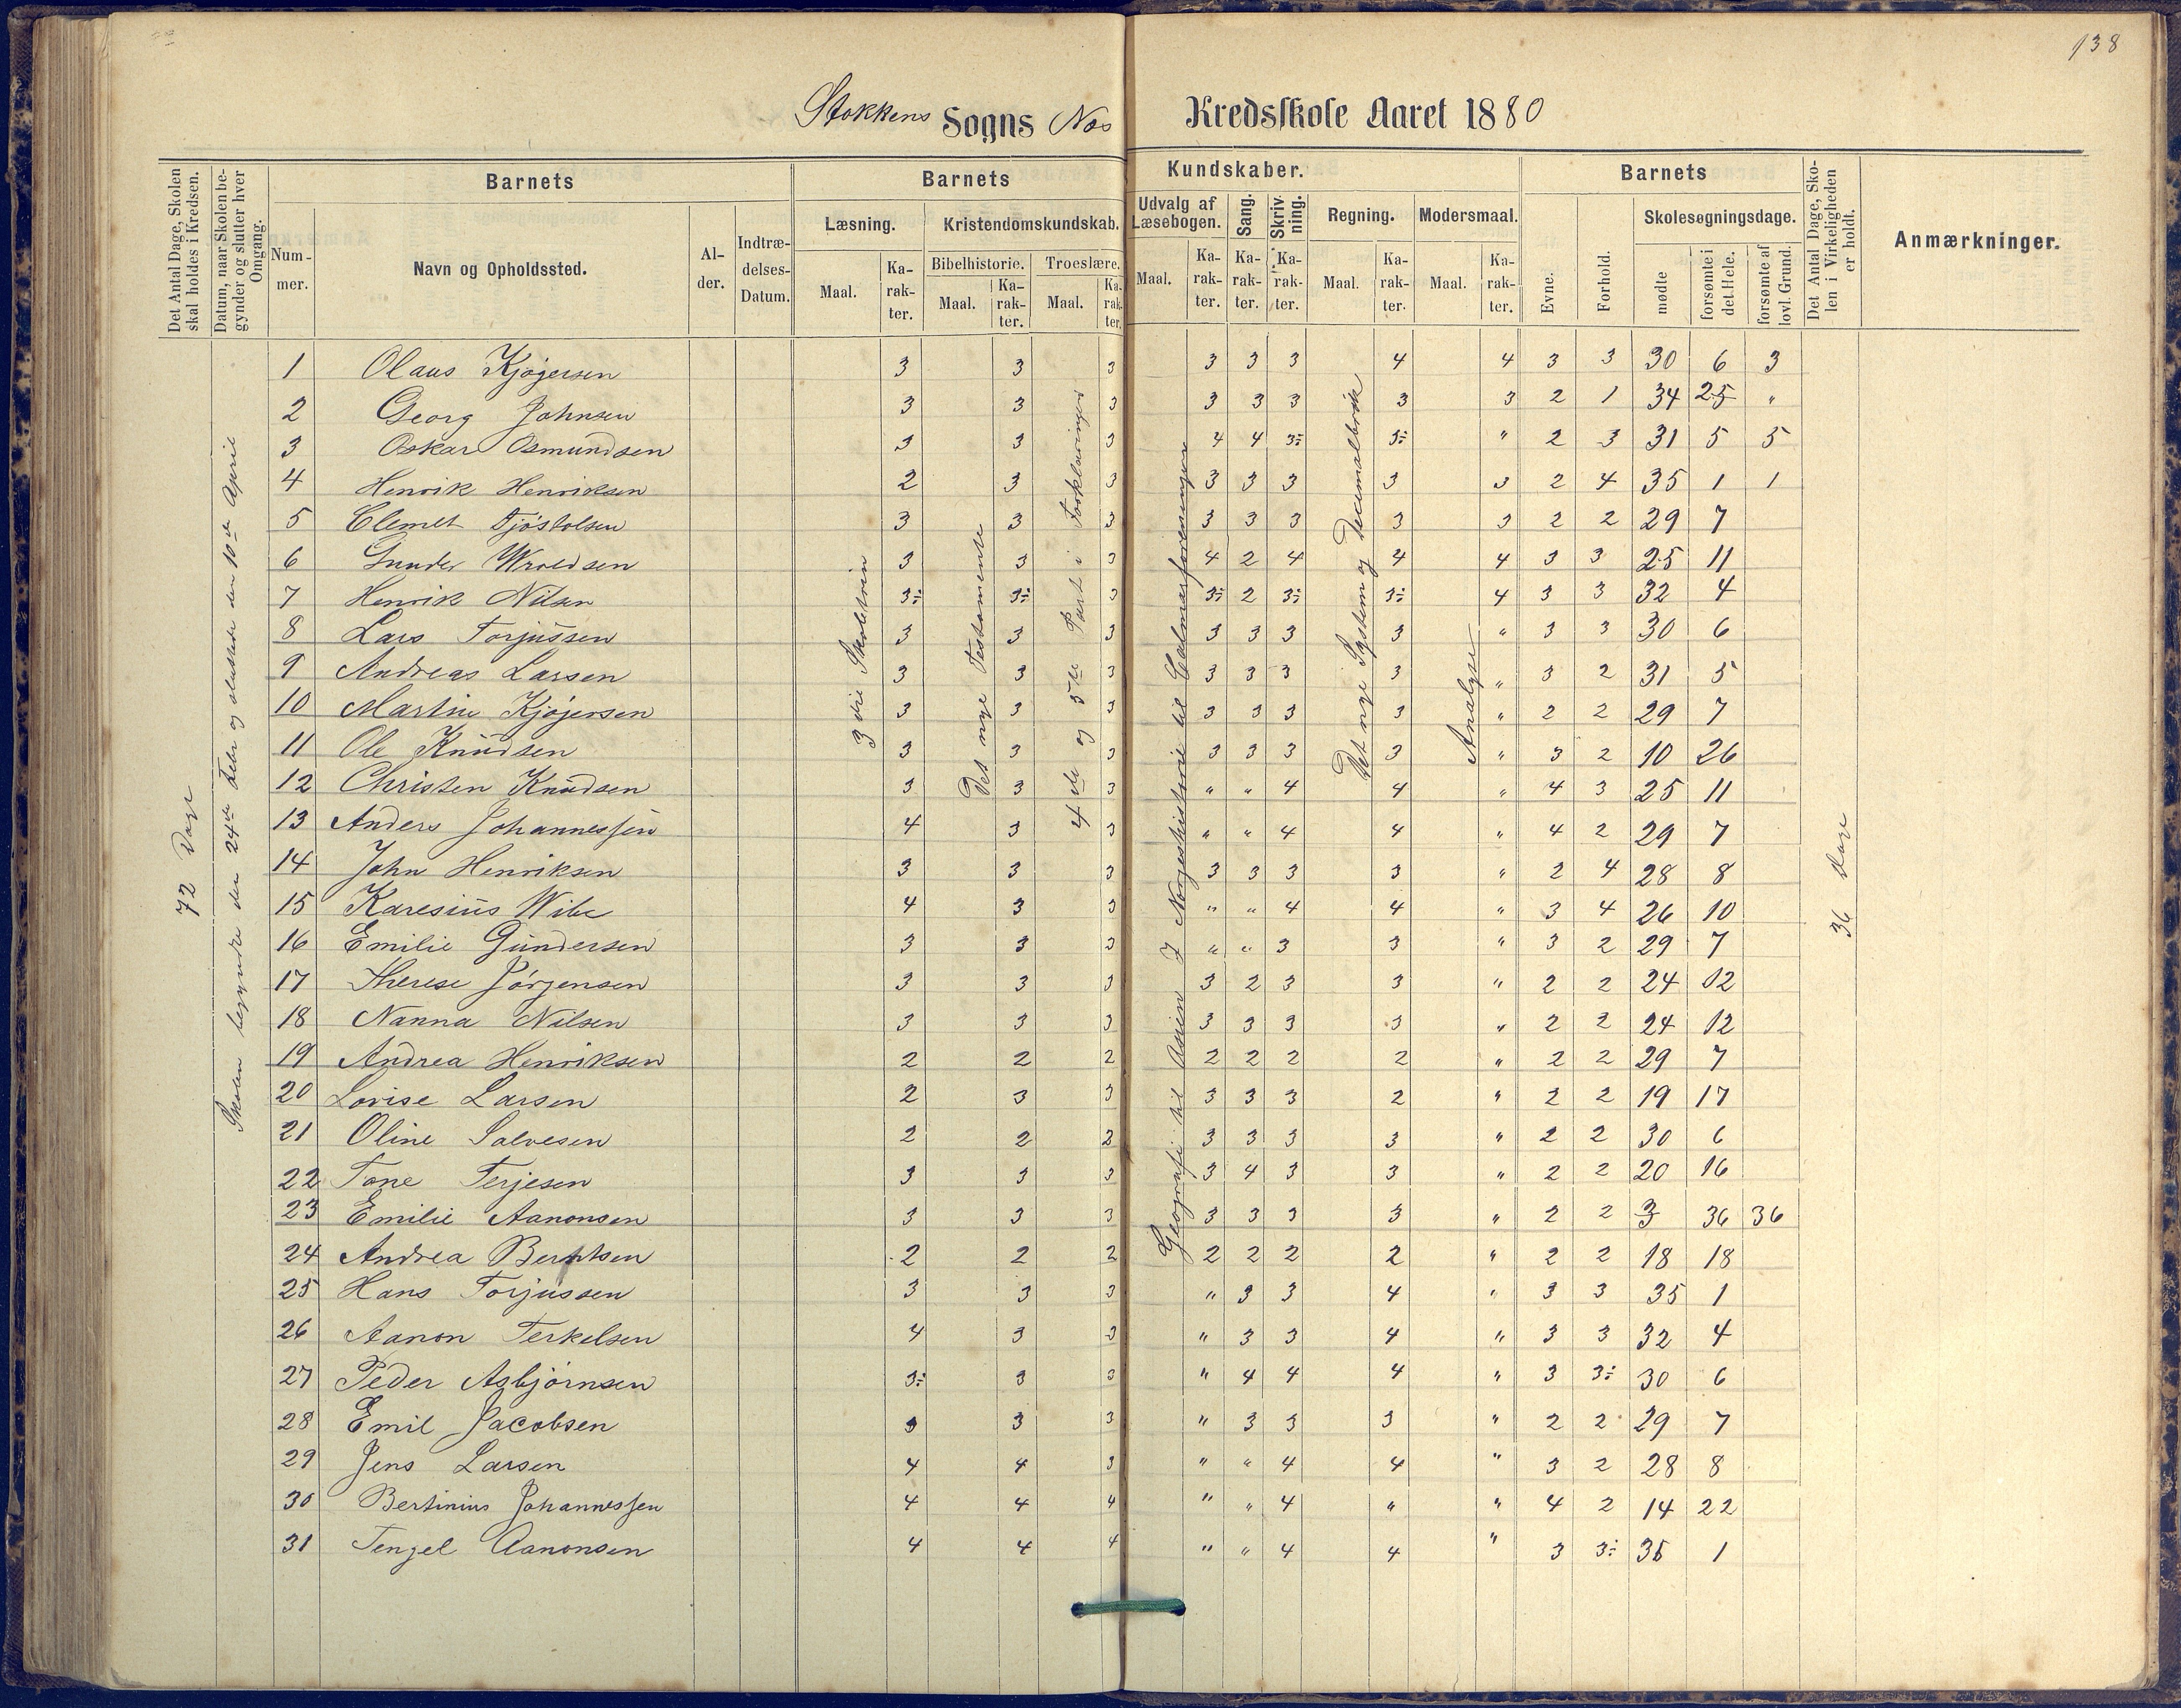 138
Stokkens Sogns Næs Kredsskole Aaret 1880
Det Antal Dage, Skolen skal holdes i Kredsen.
Datum, naar Skolen begynder og slutter hver Omgang.
Barnets
Nummer.
Navn og Opholdssted.
Alder.
Indtrædelses-Datum.
Barnets Kundskaber.
Læsning.
Maal.
Karakter.
Kristendomskundskab.
Bibelhistorie.
Maal.
Karakter.
Troeslære.
Maal.
Karakter.
Udvalg af Læsebogen.
Maal.
Karakter.
Sang.
Karakter.
Skrivning.
Karakter.
Regning.
Maal.
Karakter.
Modersmaal.
Maal.
Karakter.
Barnets
Evne.
Forhold.
Skolesøgningsdage.
mødte
forsømte i det Hele.
forsømte af lovl. Grund.
Det Antal Dage, Skolen i Virkeligheden er holdt.
Anmærkninger.
72 Dage
Skolen begyndte den 24de Febr og sluttede den 10de April
3die Skoletrin
Det nye Testamente
4de og 5te Part i Forklaringen
Geografi til Asien I Norgeshistorie til Calmarforeningen
Det nye System og Decimalbrøk
Analyse
36 Dage
1 Olaus Kjøgersen 3 3 3 3 3 3 4 4 3 3 30 6 3
2 Georg Johnsen 3 3 3 3 3 3 3 3 2 1 34 25 "
3 Oskar Osmundsen 3 3 3 4 4 3÷ 3÷ " 2 3 31 5 5
4 Henrik Henriksen 2 3 3 3 3 3 3 3 2 4 35 1 1
5 Clemet Tjøstolsen 3 3 3 3 3 3 3 3 2 2 29 7
6 Gunder Wroldsen 3 3 3 4 2 4 4 4 3 3 25 11
7 Henrik Nilsen 3÷ 3÷ 3 3÷ 2 3÷ 3÷ 4 3 3 32 4
8 Lars Torjussen 3 3 3 3 3 3 3 " 3 3 30 6
9 Andreas Larsen 3 3 3 3 3 3 3 " 3 2 31 5
10 Martin Kjøgersen 3 3 3 3 3 3 3 " 2 2 29 7
11 Ole Knudsen 3 3 3 3 3 3 3 " 3 2 10 26
12 Christen Knudsen 3 3 3 " " 4 4 " 4 3 25 11
13 Anders Johannessen 4 3 3 " " 4 4 " 4 2 29 7
14 John Henriksen 3 3 3 3 3 3 3 " 2 4 28 8
15 Karesius Wibe 4 3 3 " " 4 4 " 3 4 26 10
16 Emilie Gundersen 3 3 3 " " 3 3 " 3 2 29 7
17 Therese Jørgensen 3 3 3 3 2 3 3 " 2 2 24 12
18 Nanna Nilsen 3 3 3 3 3 3 3 " 2 2 24 12
19 Andrea Henriksen 2 2 2 2 2 2 2 " 2 2 29 7
20 Lovise Larsen 2 3 3 3 3 3 2 " 2 2 19 17
21 Oline Salvesen 2 2 2 3 3 3 3 " 2 2 30 6
22 Tone Terjesen 3 3 3 3 4 3 3 " 2 2 20 16
23 Emilie Aanonsen 3 3 3 3 3 3 3 " 2 2 3 36 36
24 Andrea Berntsen 2 2 2 2 2 2 2 " 2 2 18 18
25 Hans Torjussen 3 3 3 " 3 3 4 " 3 3 35 1
26 Aanon Terkelsen 4 3 3 " 3 3 4 " 3 3 32 4
27 Peder Asbjørnsen 3÷ 3 3 " 4 4 4 " 3 3÷ 30 6
28 Emil Jacobsen 3 3 3 " 3 3 3 " 2 2 29 7
29 Jens Larsen 4 4 3 " " 4 4 " 3 2 28 8
30 Bertinius Johannessen 4 4 4 " " 4 " " 4 2 14 22
31 Tengel Aanonsen 4 4 4 " " 4 4 " 3 3÷ 35 1